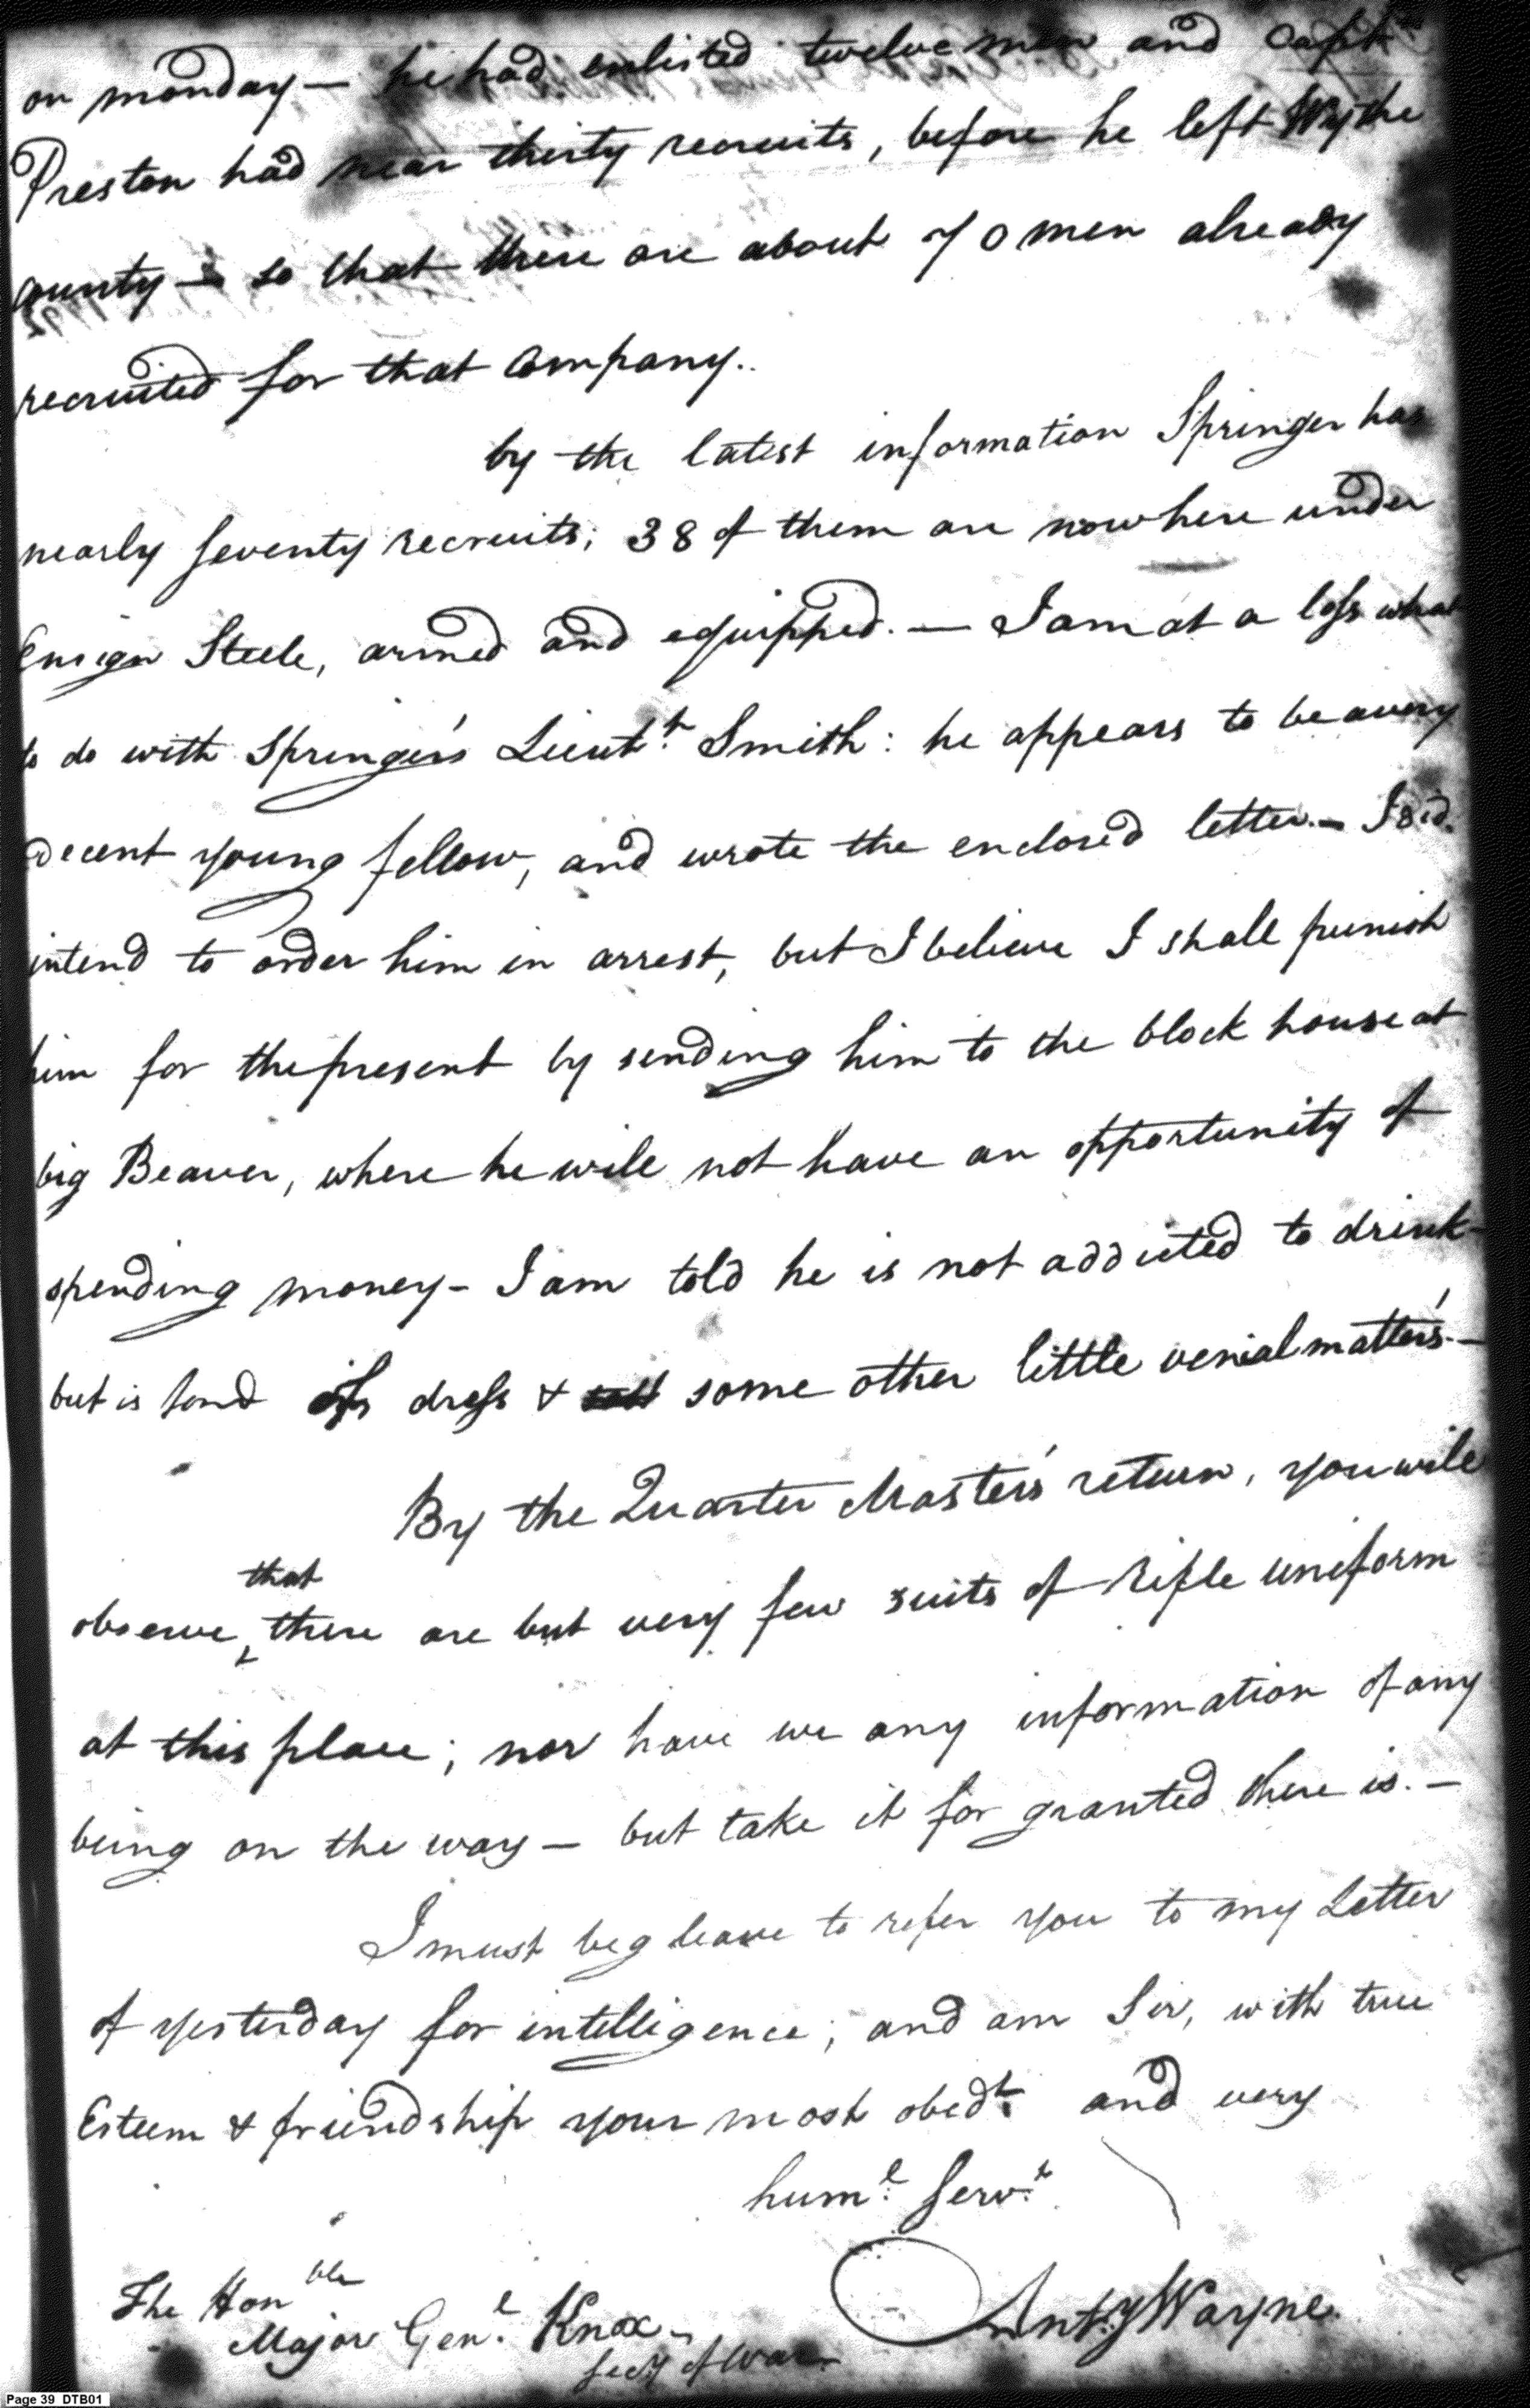 on monday — he had enlisted twelve men and Capt
Preston had near thirty recruits, before he left Wythe
County — so that there are about 70 men already
recruited for that Company..
by the latest information Springer has
nearly seventy recruits; 38 of them are now here under
Ensign Steele, armed and equipped. — I am at a loss what
to do with Springer's Lieutt. Smith: he appears to be a very
decent young fellow, and wrote the enclosed letter — I did
intend to order him in arrest, but I believe I shall punish
him for the present by sending him to the block house at
big Beaver, where he will not have an opportunity of
spending money — I am told he is not addicted to drink —
but is fond of dress & some other little venial matters. —
By the Quarter Master's return, you will
that
observe, there are but very few suits of Rifle uniform
at this place; nor have we any information of any
being on the way — but take it for granted there is. —
I must beg leave to refer you to my Letter
of yesterday for intelligence; and am Sir, with true
Esteem & friendship your most obedt. and very
huml. Servt.
Anty Wayne.
The Honble
Major Genl. Knox —
Secy of War
Page 39 DTB01